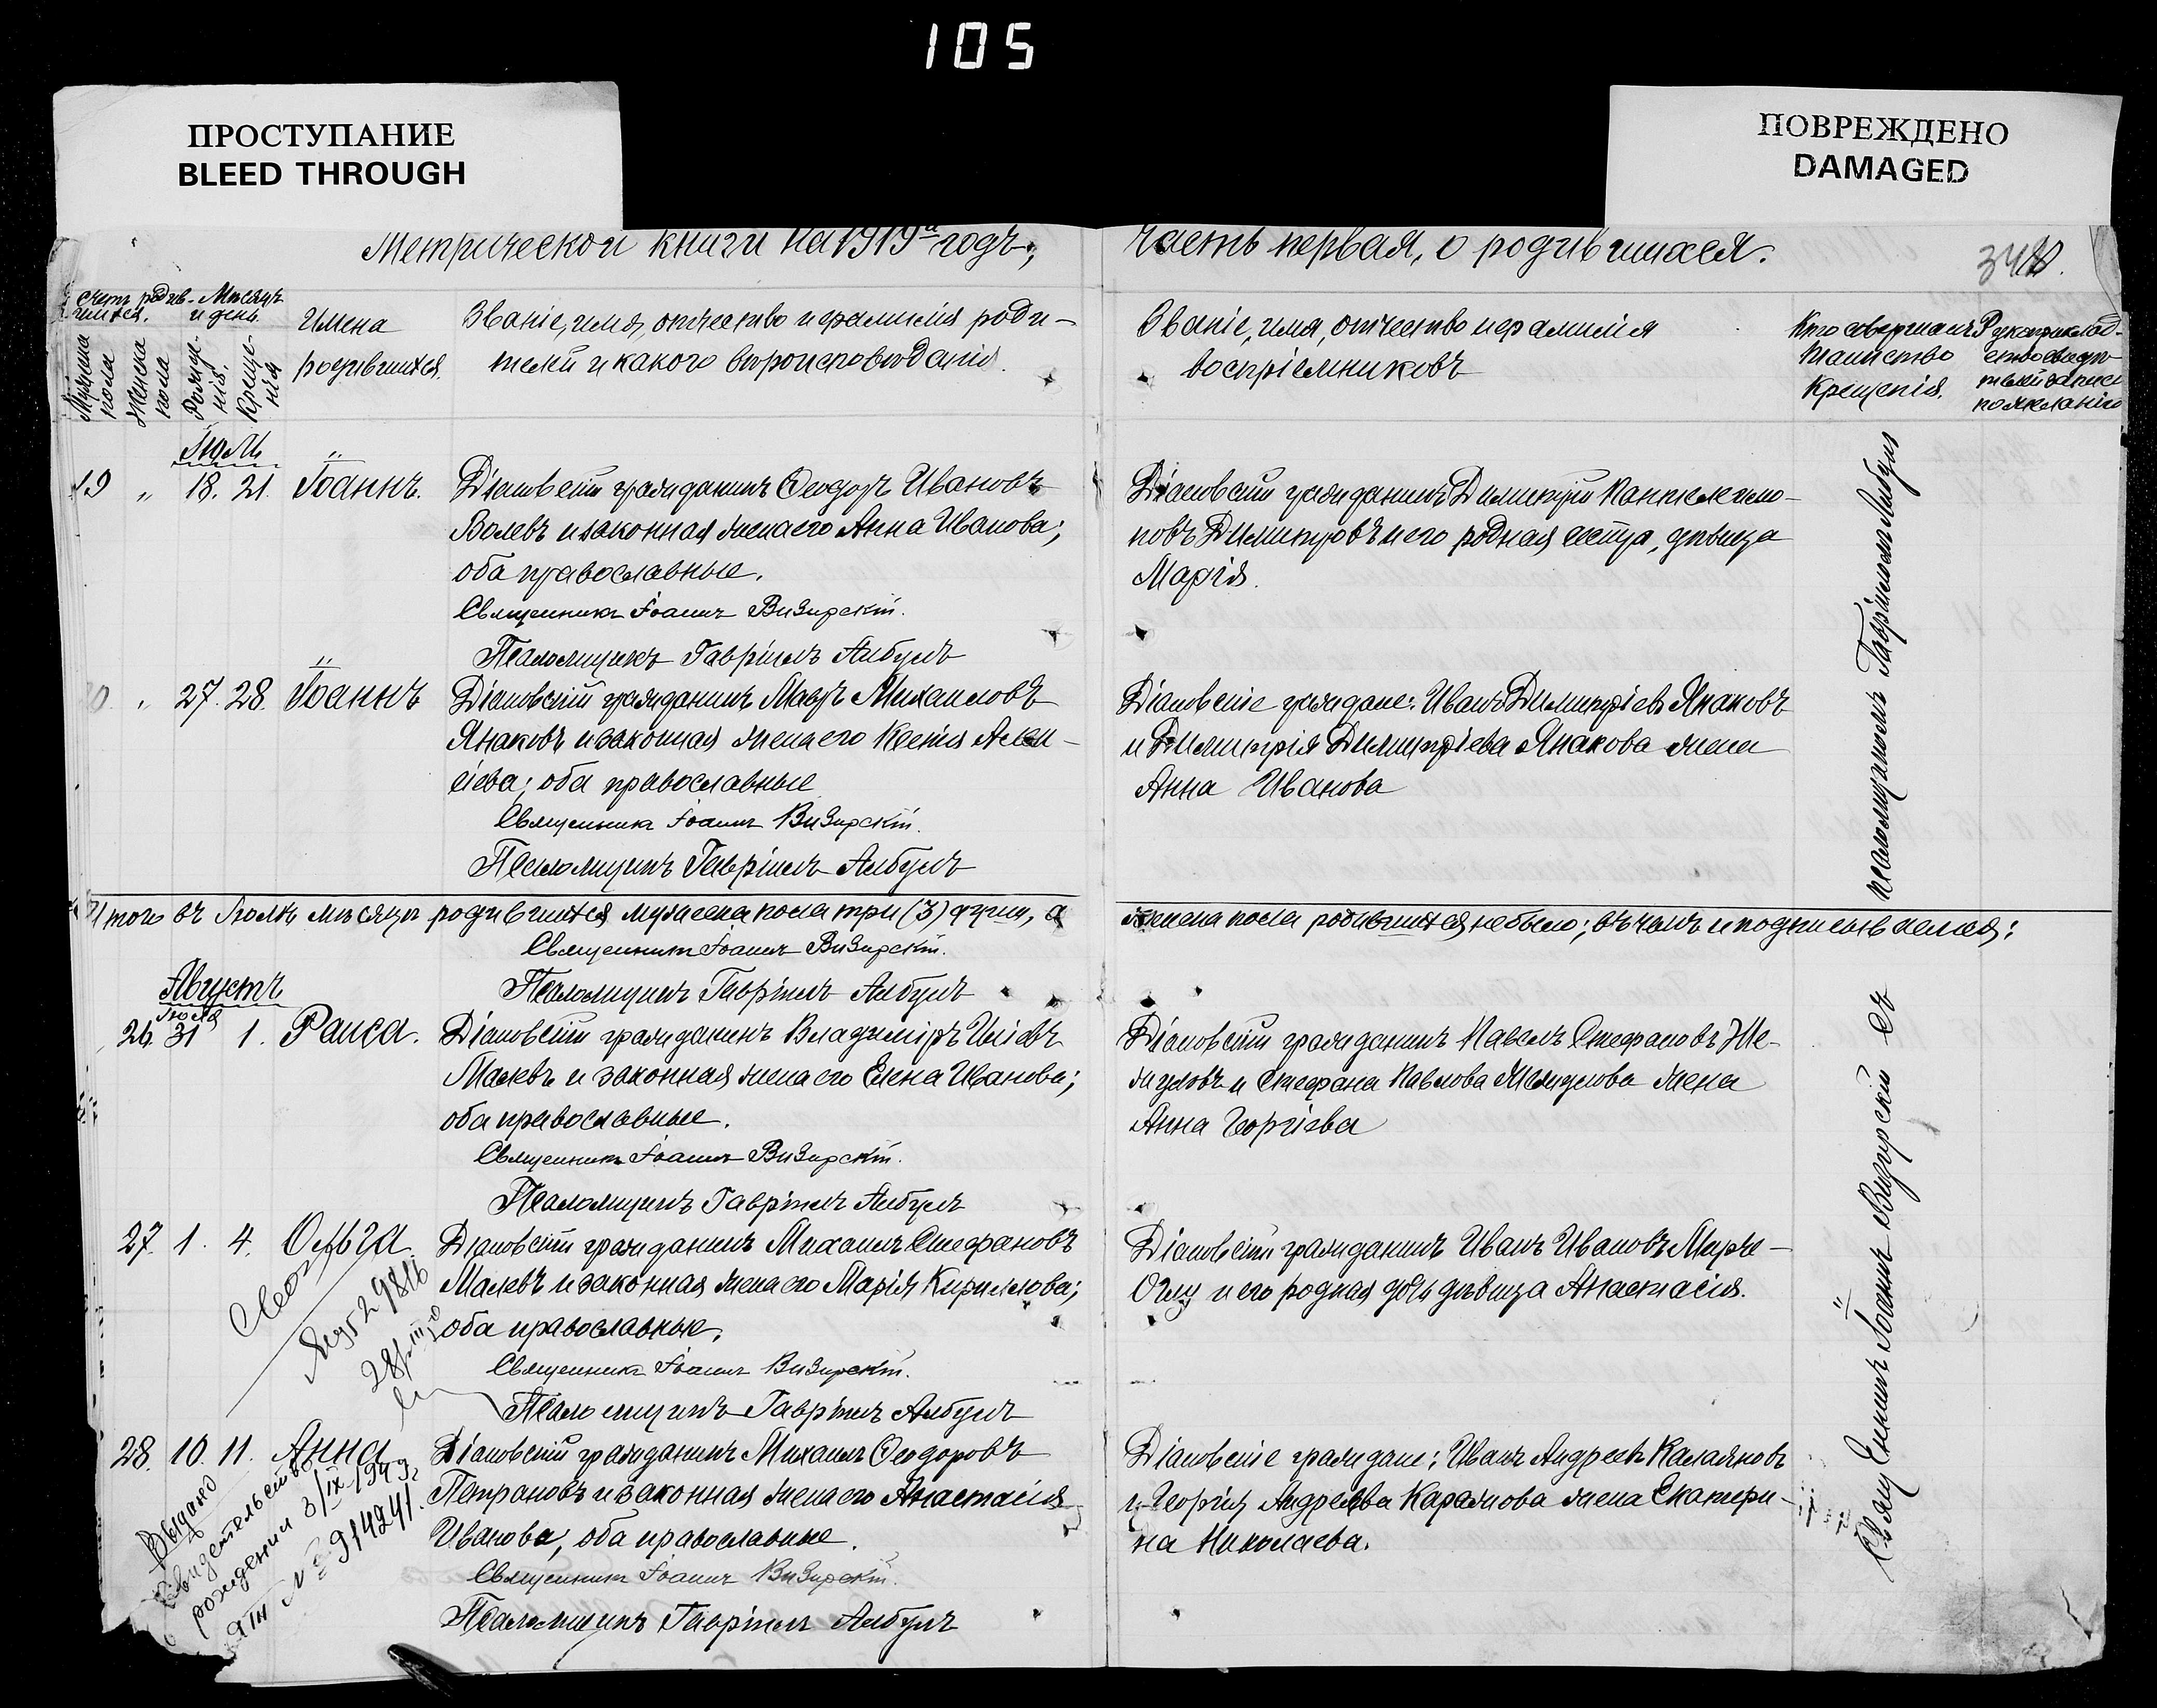 105
ПРОСТУПАНИЕ
BLEED THROUGH
ПОВРЕЖДЕНО
DAMAGED
Метрической книги на 1919й годъ,
часть первая, о родившихся.
Счетъ родив-
шихся.
Мѣсяцъ
и день.
Мужеска
пола
Женска
пола
Рожде-
нія.
Креще-
нія
Имена
родившихся.
Званіе, имя, отчество и фамилія роди-
телей и какого вѣроисповѣданія.
Званіе, имя, отчество и фамилія
воспріемниковъ
Кто совершалъ
таинство
крещенія.
Рукоприклад-
ство свидѣ-
телей записи
по желанію
Іюль
19 „ 18. 21. Іоаннъ.
гражданинъ Ѳеодоръ Ивановъ
Волевъ и законная жена его Анна Иванова;
оба православные.
Священникъ Іоаннъ Визирскій.
Псаломщикъ Гавріилъ Албулъ
гражданинъ Димитрій Пантелеимо-
новъ Димитровъ и его родная сестра, дѣвица
Марія.
„ 27. 28. Іоаннъ
гражданинъ Мавръ Михаиловъ
Янаковъ и законная жена его Ксенія Алек-
сіева; оба православные
Священникъ Іоаннъ Визирскій.
Псаломщикъ Гавріилъ Албулъ
граждане: Иванъ Димитріевъ Янаковъ
и Димитрія Димитріева Янакова жена
Анна Иванова
псаломщикомъ Гавріиломъ Албулъ
Итого въ Іюлѣ мѣсяцѣ родившихся мужеска пола три (3) души, а
женска пола родившихся не было; въ чемъ и подписываемся:
Священникъ Іоаннъ Визирскій.
Псаломщикъ Гавріилъ Албулъ
Августъ
Іюля
26. 31 1. Раиса.
гражданинъ Владиміръ Иліевъ
Малевъ и законная жена его Елена Иванова;
оба православные.
Священникъ Іоаннъ Визирскій.
Псаломщикъ Гавріилъ Албулъ
гражданинъ Павелъ Стефановъ Же-
и Стефана Павлова жена
Анна Георгіева
27. 1. 4. Ольга.
гражданинъ Михаилъ Стефановъ
Малевъ и законная жена его Марія Кириллова;
оба православные.
Священникъ Іоаннъ Визирскій.
Псаломщикъ Гавріилъ Албулъ
гражданинъ Иванъ Ивановъ
Оглу и его родная дочь дѣвица Анастасія.
28. 10. 11. Анна
гражданинъ Михаилъ Ѳеодоровъ
Петрановъ и законная жена его Анастасія
Иванова, оба православные.
Священникъ Іоаннъ Визирскій.
Псаломщикъ Гавріилъ Албулъ
граждане: Иванъ Андреевъ Калаяновъ
и Георгія Андреева жена Екатери-
на Николаева.
Священникъ Іоаннъ Визирскій съ
Выдано
свидетельство
рождении 3/IX 1949 г.
ЯШ № 914241.